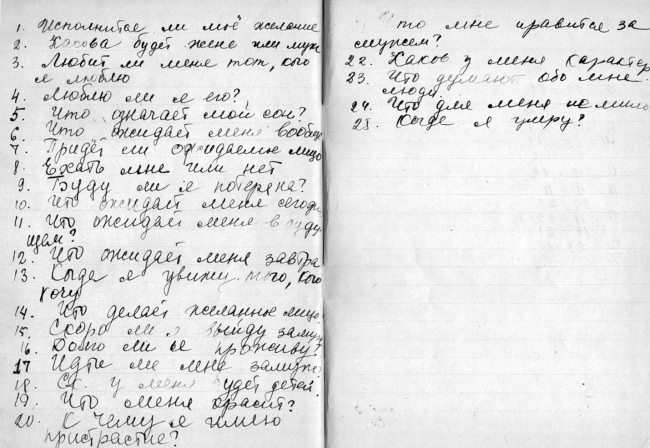 1. Исполнится ли моё желание
2. Какова будет жена или муж
3. Любит ли меня тот, кого
я люблю
4. Люблю ли я его?
5. Что означает мой сон?
6. Что ожидает меня вообще
7. Придёт ли ожидаемое лицо
8. Ехать мне или нет
9. Буду ли я потеряна?
10. Что ожидает меня сегодня
11. Что ожидает меня в буду
щем?
12. Что ожидает меня завтра
13. Когда я увижу того, кого
хочу
14. Что делает желанное лицо
15. Скоро ли я выйду замуж
16. Долго ли я проживу?
17. Идти ли мне замуж
18. Ск. у меня будет детей
19. Что меня красит?
20. К чему я имею
пристрастие?
то мне нравится за
мужем?
22. Каков у меня характер
23. Что думают обо мне
люди
24. Что для меня не мило
25. Когда я умру?